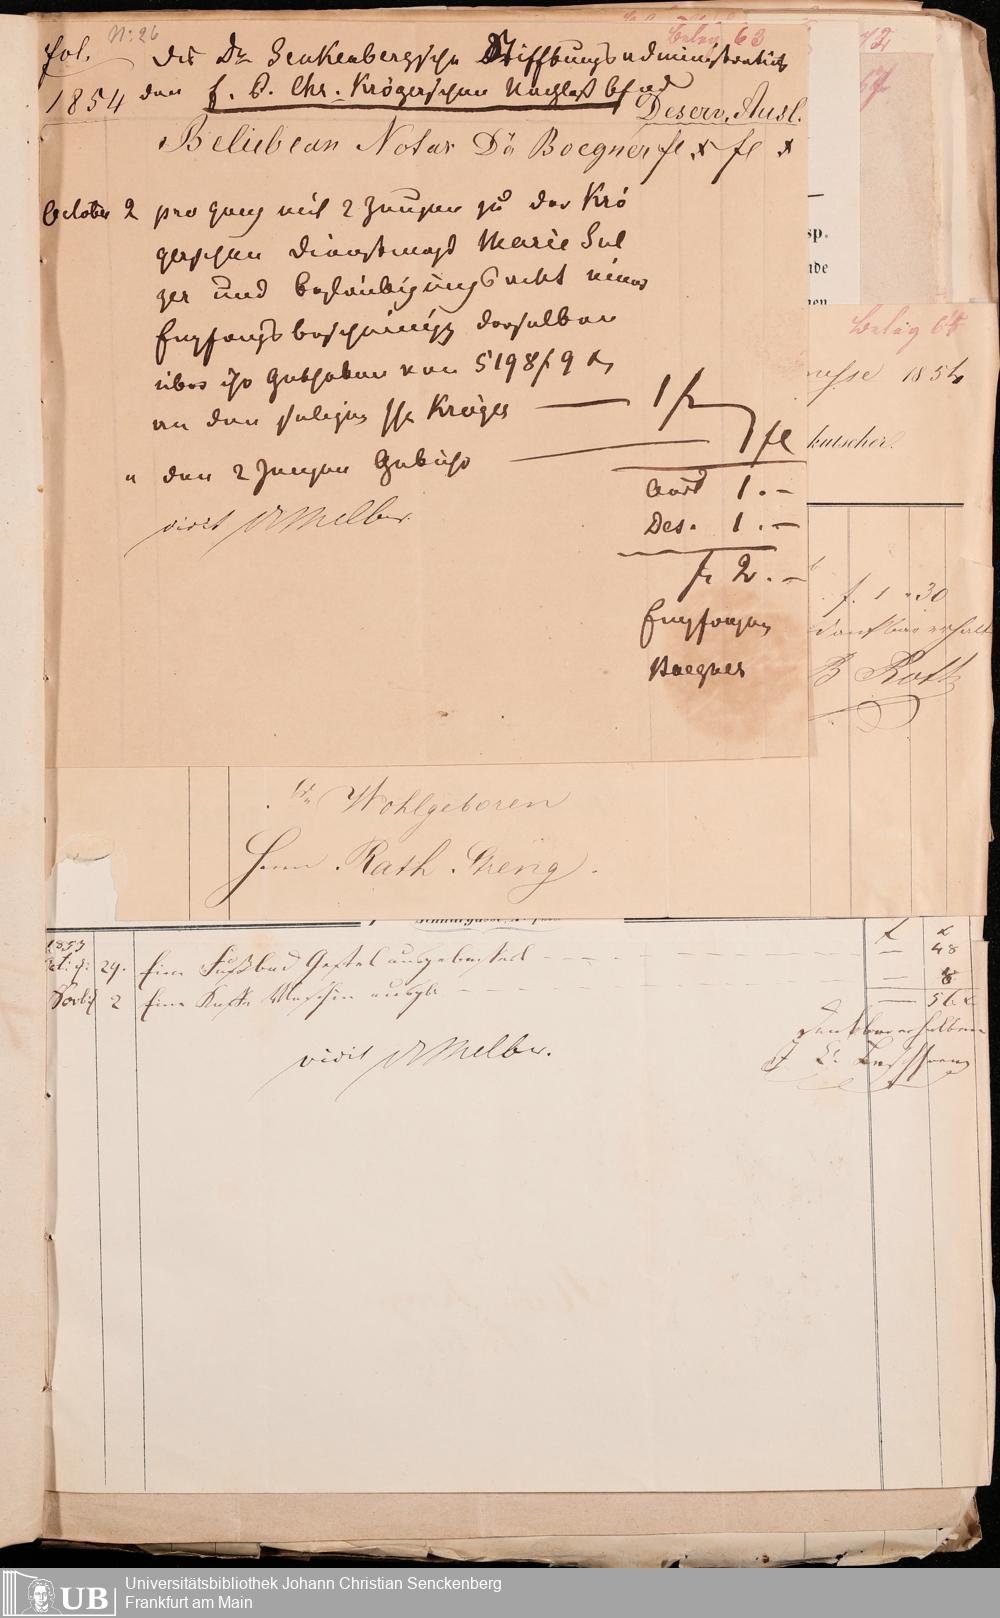 fol. N: 26
Beleg 63
Die Dr Senkenbergsche Stifftungsadministration
1854 den f. B. Chr. Krögerschen Nachlaß btrfd
Deserv. Ausl.
Belieb an Notar Dr Boegner fl x fl x
October 2 pro gang mit 2 Zeugen zu der Krö
gerschen Dienstmagd Marie Sul
zer und Beglaubigungsackt eines
Empfangsbescheinigg derselben
über ihr Guthaben von 5198 f 9 x
an den seligen H. Kröger — 1 f
" den 2 Zeugen Gebühr — 1 fl
Ausl 1 . –
Des. 1 . –
f 2 . –
vidit Dr Melber.
Empfangen
Boegner
42
67
sp.
nde
nen
Beleg 64
1854
kutscher
f. 1 " 30
dankbar erhalt
B Roth
Wohlgeboren
Herrn Rath Streng.
1853
29. Eine Fußbad Gestel ausgebessert — 48
2 Eine Kaffe Maschin ausgb — 8
— 56 x
Dankbar erhalten
vidit Dr Melber.
UB Universitätsbibliothek Johann Christian Senckenberg
Frankfurt am Main